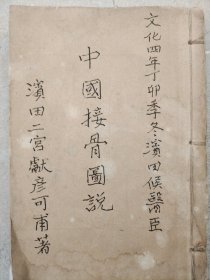 文化四年丁卯季冬濱田候醫臣
中國接骨圖説
濱田二宮獻彦可甫著